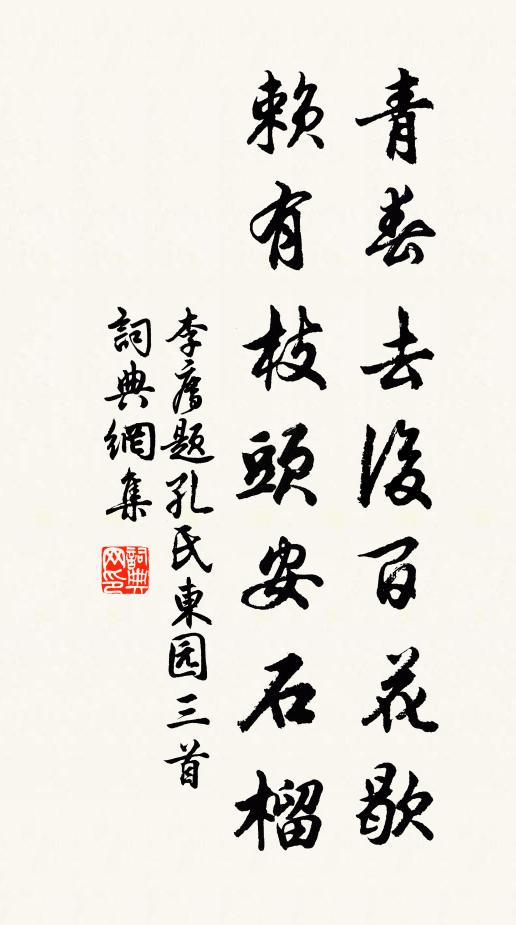 青春去後百花歇
賴有枝頭安石榴
李廌题孔氏東园三首
詞典網集
詞典网印